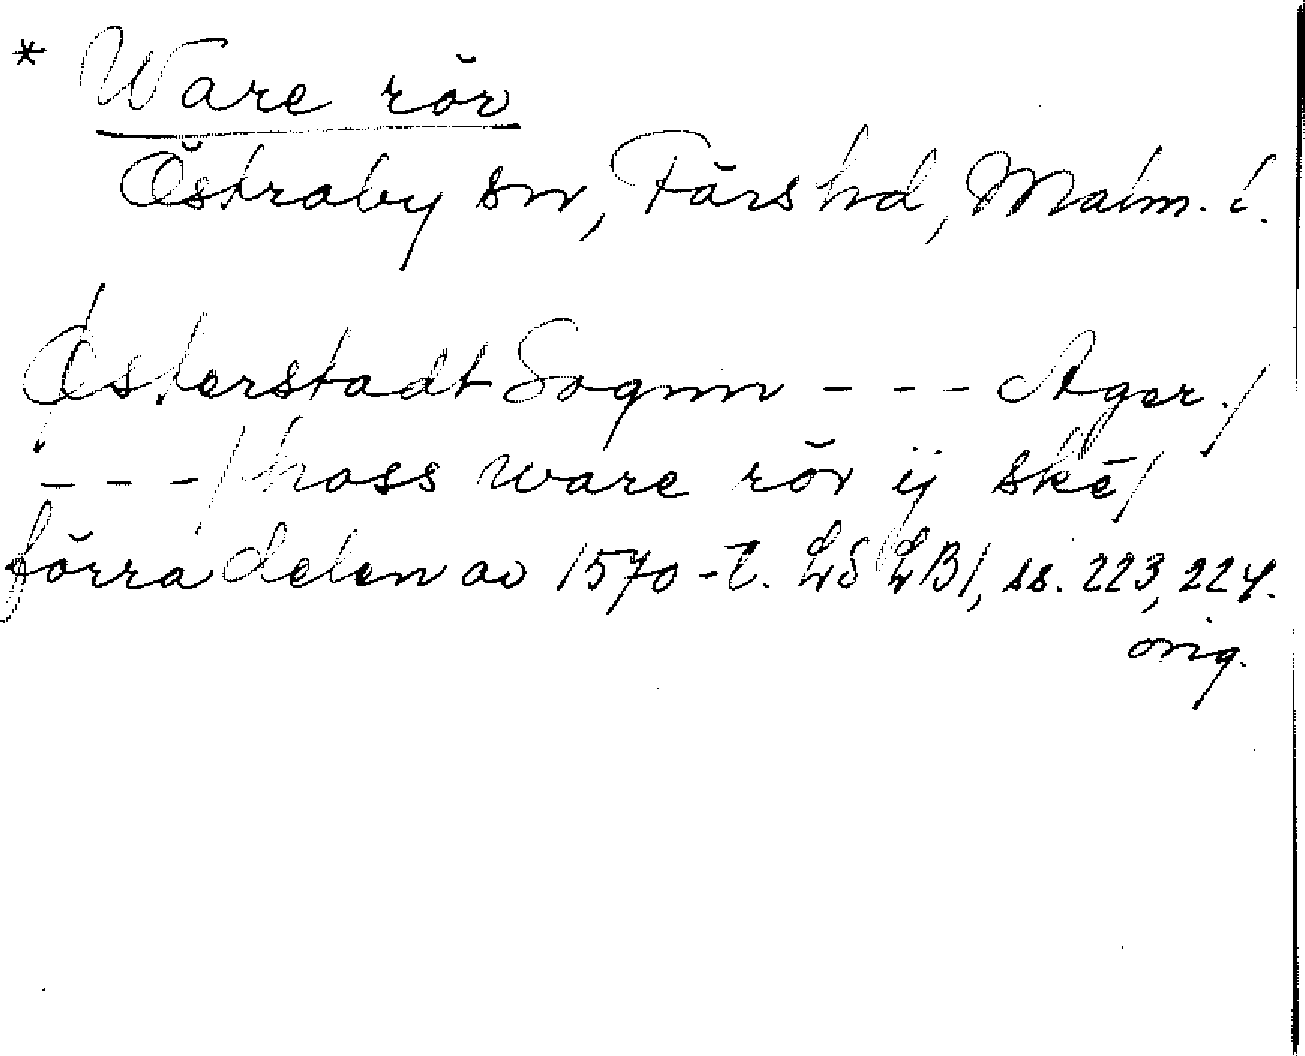 * Ware rör
Östraby sn, Färs hd, Malm. l.
Østerstadt Sognn - - - Ager. /
- - - / hoss ware rör ij skē /
förra delen av 1570-t. LSLB1, ss. 223, 224.
orig.